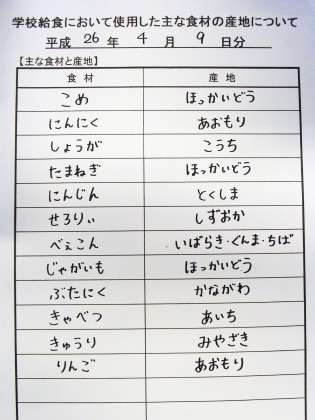 学校給食において使用した主な食材の産地について
平成 26 年 4 月 9 日分
【主な食材と産地】
食材 産地
こめ ほっかいどう
にんにく あおもり
しょうが こうち
たまねぎ ほっかいどう
にんじん とくしま
せろりぃ しずおか
べぇこん いばらき・ぐんま・ちば
じゃがいも ほっかいどう
ぶたにく かながわ
きゃべつ あいち
きゅうり みやざき
りんご あおもり